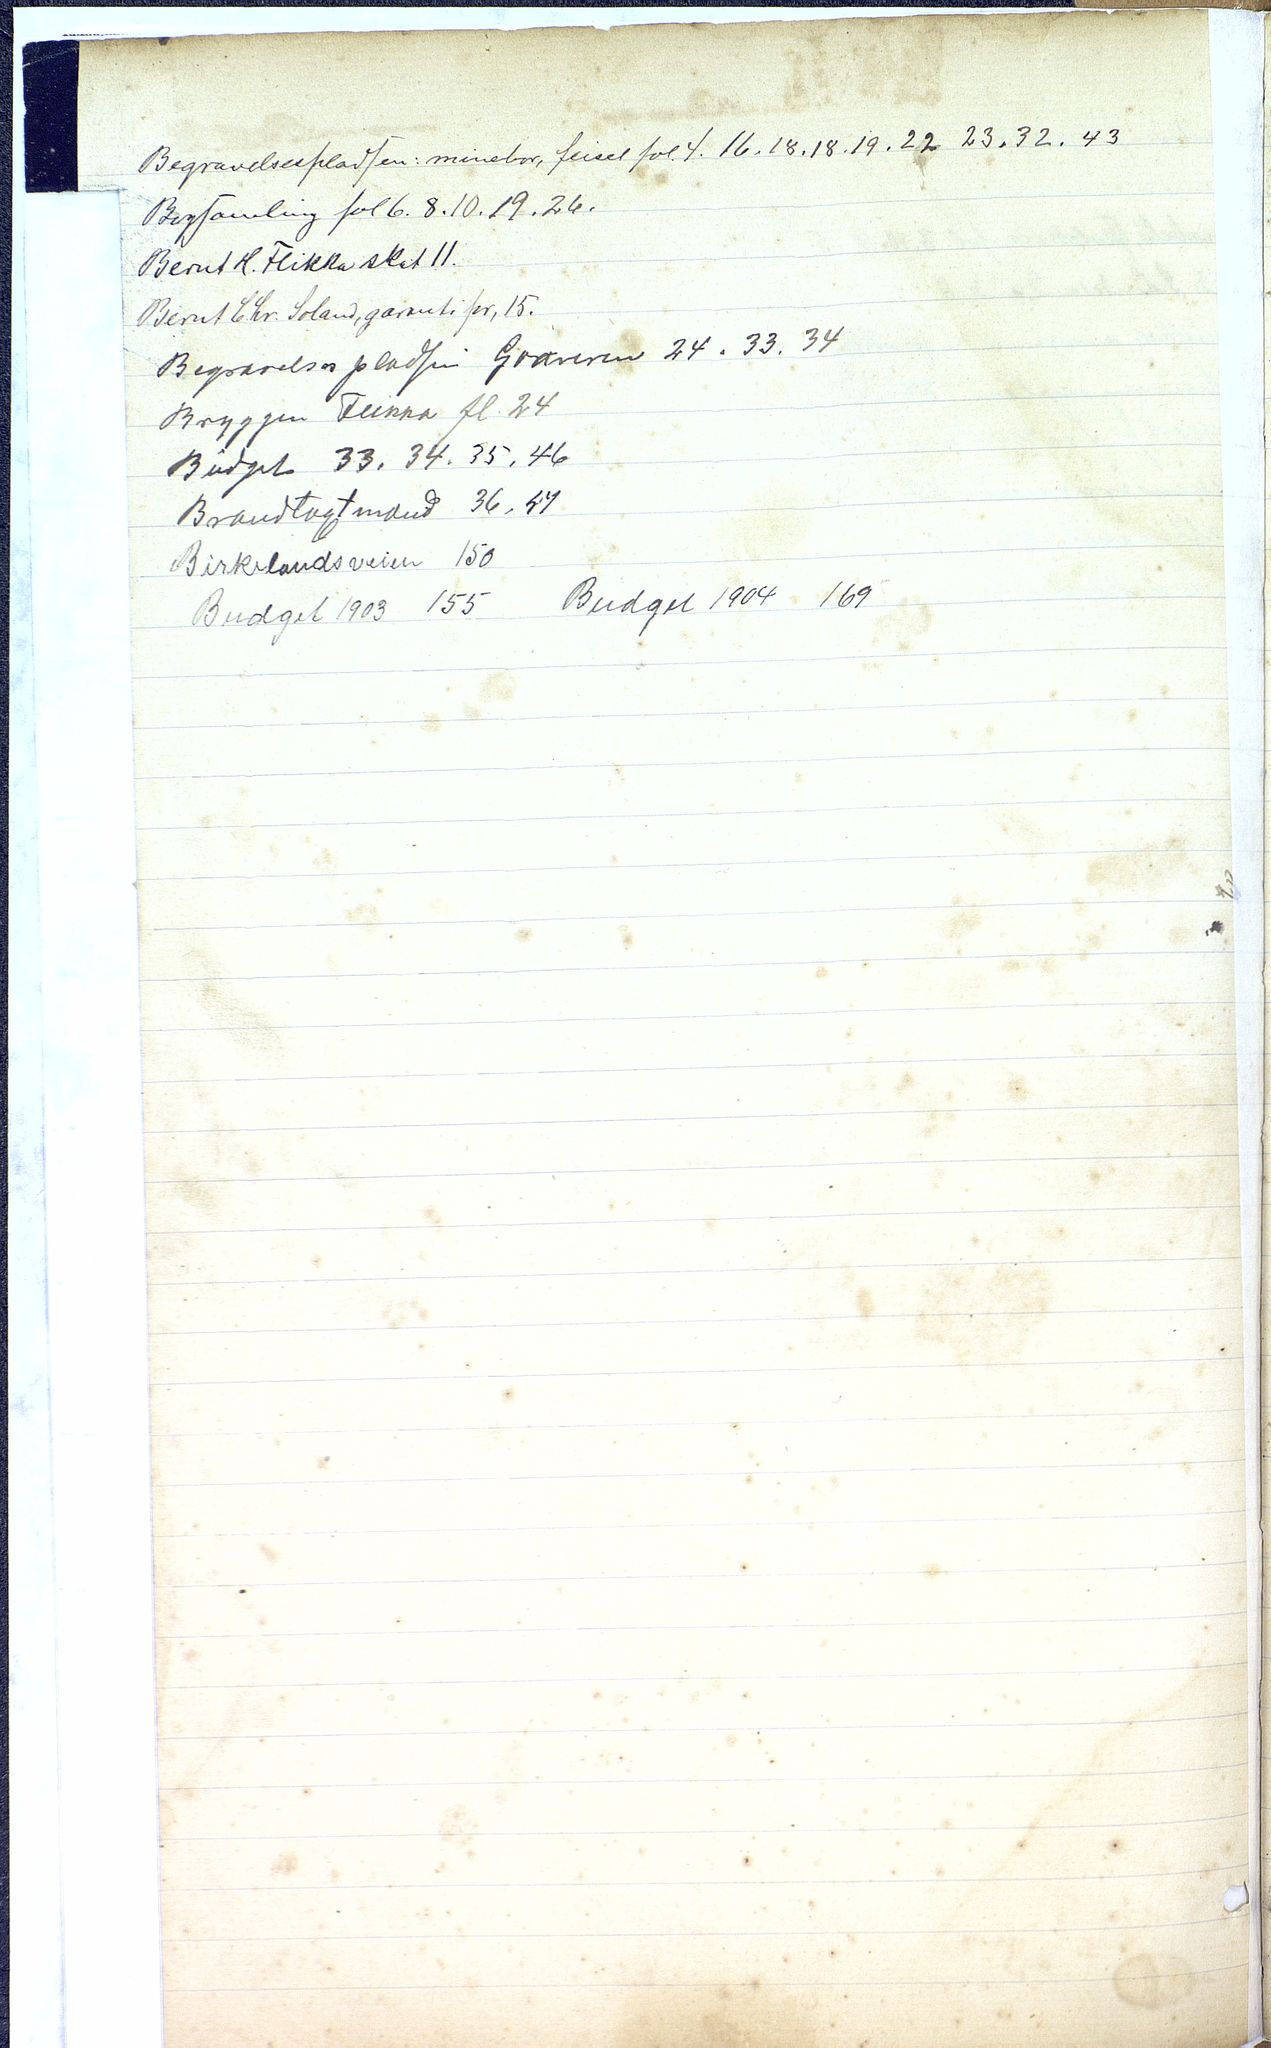 Begravelsespladsen: minebor, feisel fol. 4. 16. 18. 18. 19. 22 23. 32. 43
Bogsamling fol 6. 8. 10. 19. 26.
Bernt H. Flikka skat 11.
Bernt Chr. Soland, garanti for, 15.
Begravelsespladsen Graveren 24. 33. 34
Bryggen Flikka fl. 24
Budget 33. 34. 35. 46
Brandtagtmand 36. 47
Birkelandsveien 150
Budget 1903 155 Budget 1904 169